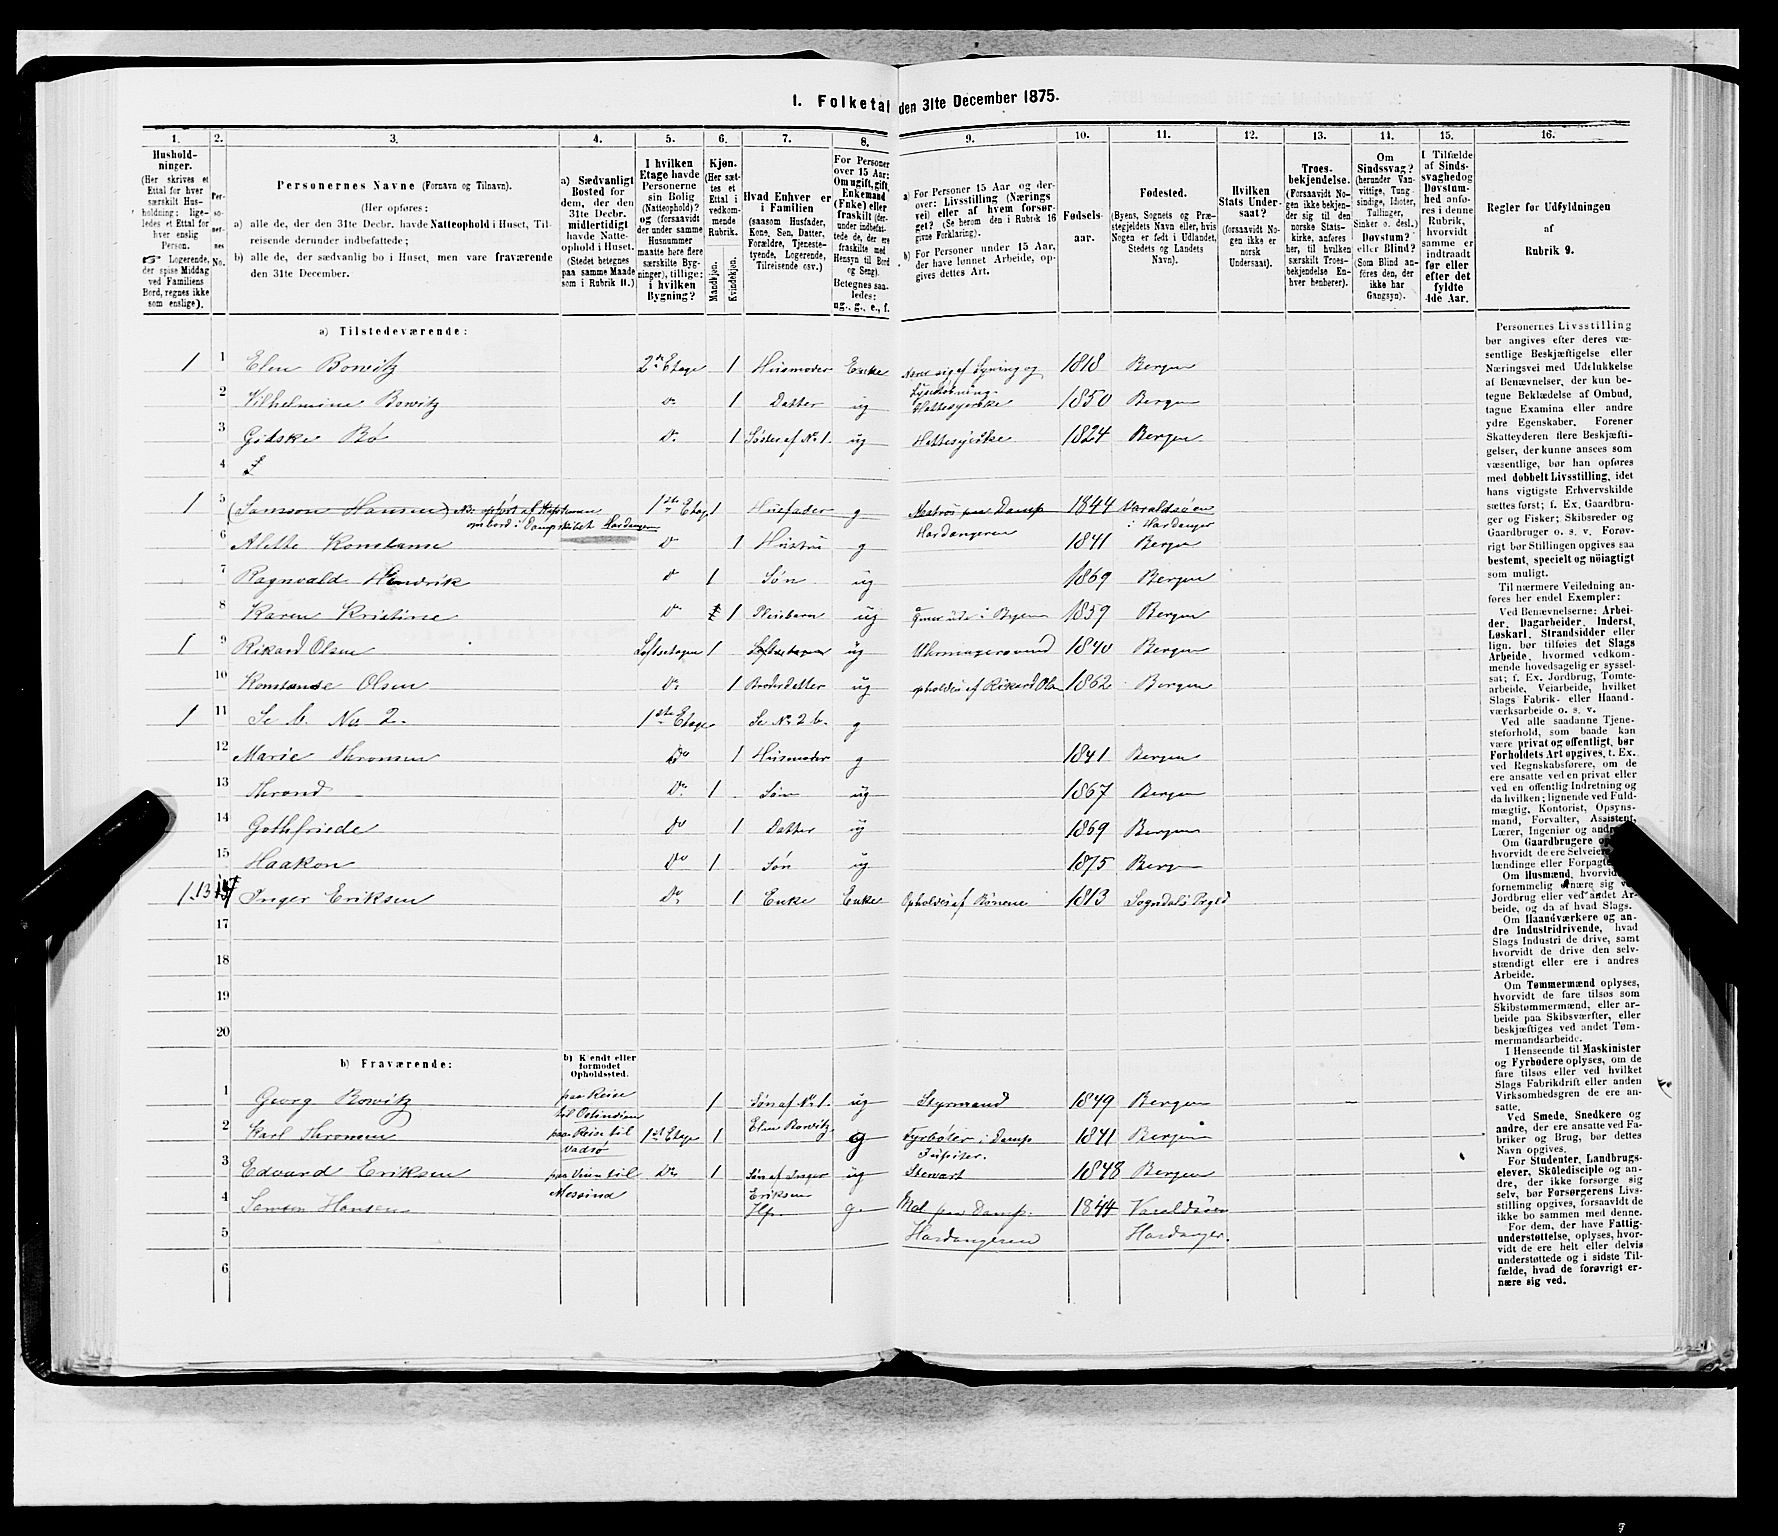 I. Folketal den 31te December 1875.
1. 2. 3. 4. 5. 6. 7. 8. 9. 10. 11. 12. 13. 14. 15. 16.
Husholdninger.
(Her skrives et Ettal for hver særskilt Husholdning; ligeledes et Ettal for hver enslig Person.
☞ Logerende, der spise Middag ved Familiens Bord, regnes ikke som enslige).
Personernes No.
Personernes Navne (Fornavn og Tilnavn).
(Her opføres:
a) alle de, der den 31te Decbr. havde Natteophold i Huset, Tilreisende derunder indbefattede;
b) alle de, der sædvanlig bo i Huset, men vare fraværende den 31te December.
a) Sædvanligt Bosted for dem, der den 31te Decbr. midlertidigt havde Natteophold i Huset. (Stedet betegnes paa samme Maade som i Rubrik 11.)
I hvilken Etage havde Personerne sin Bolig (Natteophold)? og (forsaavidt der under samme Husnummer maatte høre flere særskilte Bygninger), tillige: i hvilken Bygning?
Kjøn. (Her sættes et Ettal i vedkommende Rubrik.
Mandkjøn. Kvindekjøn.
Hvad Enhver er i Familien
(saasom Husfader, Kone, Søn, Datter, Forældre, Tjenestetyende, Logerende, Tilreisende osv.)
For Personer over 15 Aar: Om ugift, gift, Enkemand (Enke) eller fraskilt (derunder indbefattede de, der ere fraskilte med Hensyn til Bord og Seng). Betegnes saaledes: ug., g., e., f.
a) For Personer 15 Aar og derover: Livsstilling (Næringsvei) eller af hvem forsørget? (Se herom den i Rubrik 16 givne Forklaring).
b) For Personer under 15 Aar, der have lønnet Arbeide, opgives dettes Art.
Fødselsaar.
Fødested.
(Byens, Sognets og Præstegjeldets Navn, eller, hvis Nogen er født i Udlandet, Stedets og Landets Navn).
Hvilken Stats Undersaat?
(forsaavidt Nogen ikke er norsk Undersaat).
Troesbekjendelse.
(Forsaavidt Nogen ikke bekjender sig til den norske Statskirke, anføres her, til hvilken særskilt Troesbekjendelse Enhver henhører).
Om Sindssvag? (herunder Vanvittige, Tungsindige, Idioter, Tullinger, Sinker o. desl.) Døvstum? eller Blind? (Som Blind anføres den, der ikke har Gangsyn).
I Tilfælde af Sindssvaghed og Døvstumhed anføres i denne Rubrik, hvorvidt samme er indtraadt før eller efter det fyldte 4de Aar.
Regler for Udfyldningen af Rubrik 9.
a) Tilstedeværende:
1 1 Elen Bowitz 2den Etage 1 Husmoder Enke Nære sig af Syning og 1818 Bergen
2 Vilhelmine Bowitz Do 1 Datter ug Hattesyerske 1850 Bergen
3 Gidske Bø Do 1 Søster af No 1. ug Hattesyerske 1824 Bergen
4
1 5 (Samson Hansen) 1ste Etage 1 Husfader g Matros paa Damp 1844 Varaldsøen
ombord i Dampskibet Hardangeren Hardangeren i Hardanger
6 Alette Konstanse Do 1 Hustru g 1841 Bergen
7 Ragnvald Hendrik Do 1 Søn ug 1869 Bergen
8 Karen Kristine Do 1 Pleiebarn ug 1859 Bergen
1 9 Rikard Olsen Loftsetagen 1 ug Uhrmagersvend 1840 Bergen
10 Konstanse Olsen Do 1 Broderdatter ug opholdes af Rikard Olsen 1862 Bergen
1 11 Se b. No 2. 1ste Etage Se No 2 b. g
12 Marie Thronsen Do 1 Husmoder g 1841 Bergen
13 Thrond Do 1 Søn ug 1867 Bergen
14 Gothfriede Do 1 Datter ug 1869 Bergen
15 Haakon Do 1 Søn ug 1875 Bergen
1 Inger Eriksen Do 1 Enke Enke Opholdes af Sønene 1813 Sogndals Prgld
17
18
19
20
b) Fraværende:
b) Kjendt eller formodet Opholdssted.
1 Georg Bowitz paa Reise til Ostindien 1 Søn af No 1. Elen Bowitz ug Styrmand 1849 Bergen
2 Karl Thronsen paa Reise til Vadsø 1ste Etage 1 g Fyrbøter i Damp Jupiter. 1841 Bergen
3 Edvard Eriksen til Messina Do 1 Søn af Inger Eriksen ug Stewart 1848 Bergen
4 Samson Hansen Hf. g. Mat paa Damp. 1844 Varaldsøen
5 Hardangeren Hardanger.
6
Personernes Livsstilling bør angives efter deres væsentlige Beskjæftigelse eller Næringsvei med Udelukkelse af Benævnelser, der kun betegne Beklædelse af Ombud, tagne Examina eller andre ydre Egenskaber. Forener Skatteyderen flere Beskjæftigelser, der kunne ansees som væsentlige, bør han opføres med dobbelt Livsstilling, idet hans vigtigste Erhvervskilde sættes først; f. Ex. Gaardbruger og Fisker; Skibsreder og Gaardbruger o. s. v. Forøvrigt bør Stillingen opgives saa bestemt, specielt og nøiagtigt som muligt.
Til nærmere Veiledning anføres her endel Exempler:
Ved Benævnelserne: Arbeider, Dagarbeider, Inderst, Løskarl, Strandsidder eller lign. bør tilføies det Slags Arbeide, hvormed vedkommende hovedsagelig er sysselsat; f. Ex. Jordbrug, Tomtearbeide, Veiarbeide, hvilket Slags Fabrik- eller Haandværksarbeide o. s. v.
Ved alle saadanne Tjenesteforhold, som baade kan være privat og offentligt, bør Forholdets Art opgives, t. Ex. ved Regnskabsførere, om de ere ansatte ved en privat eller ved en offentlig Indretning og da hvilken; lignende ved Fuldmægtig, Kontorist, Opsynsmand, Forvalter, Assistent, Lærer, Ingeniør og andre.
Om Gaardbrugere opgives, hvorvidt de ere Selveiere, Leilændinge eller Forpagtere.
Om Husmænd, hvorvidt de fornemmelig ernære sig ved Jordbrug eller ved andet Arbeide, og da af hvad Slags.
Om Haandværkere og andre Industridrivende, hvad Slags Industri de drive, samt hvorvidt de drive den selvstændigt eller ere i andres Arbeide.
Om Tømmermænd oplyses, hvorvidt de fare tilsøs som Skibstømmermænd, eller arbeide paa Skibsværfter, eller beskjæftiges ved andet Tømmermandsarbeide.
I Henseende til Maskinister og Fyrbødere oplyses, om de fare tilsøs eller ved hvilket Slags Fabrikdrift eller anden Virksomhedsgren de ere ansatte.
Ved Smede, Snedkere og andre, der ere ansatte ved Fabriker og Brug, bør dettes Navn opgives.
For Studenter, Landbrugselever, Skoledisciple og andre, der ikke forsørge sig selv, bør Forsørgerens Livsstilling opgives, forsaavidt de ikke bo sammen med denne.
For dem, der have Fattigunderstøttelse, oplyses, hvorvidt de ere helt eller delvis understøttede og i sidste Tilfælde, hvad de forøvrigt ernære sig ved.